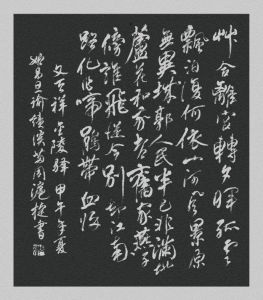 艸合離宮轉夕暉孤雲
飄泊復何依山河風景原
無異城郭人民半已非滿地
蘆花和我老舊家燕子
傍誰飛從今別卻江南
路化作啼鵑帶血歸
文天祥金陵驛甲午年夏
周滬捷書